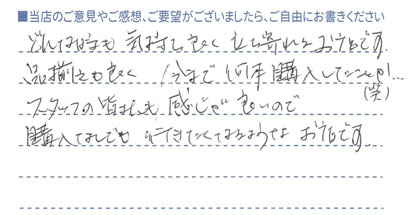 ■当店のご意見やご感想、ご要望がございましたら、ご自由にお書きください
どんな時も 気持ち良く 立ち寄れるお店です。
品揃えも良く 今まで何本購入したことか!...
(笑)
スタッフの皆さんも 感じが良いので
購入なしでも 行きたくなるようなお店です。